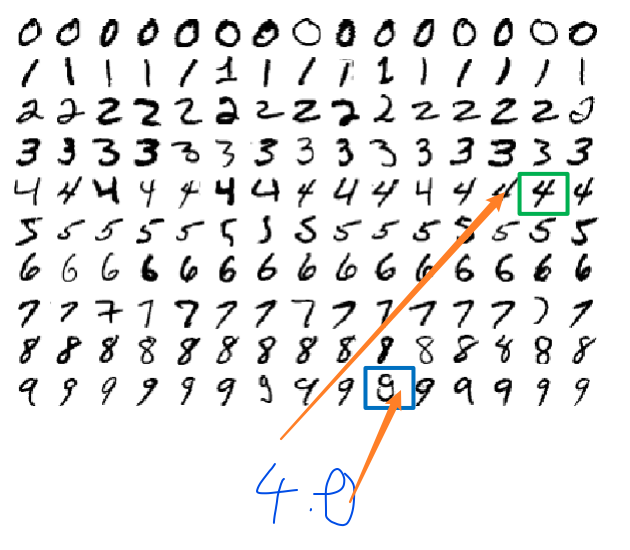 0 0 0 0 0 0 0 0 0 0 0 0 0 0 0
1 1 1 1 1 1 1 1 1 1 1 1 1 1 1
2 2 2 2 2 2 2 2 2 2 2 2 2 2 2
3 3 3 3 3 3 3 3 3 3 3 3 3 3 3
4 4 4 4 4 4 4 4 4 4 4 4 4 4 4
5 5 5 5 5 5 5 5 5 5 5 5 5 5 5
6 6 6 6 6 6 6 6 6 6 6 6 6 6 6
7 7 7 7 7 7 7 7 7 7 7 7 7 7 7
8 8 8 8 8 8 8 8 8 8 8 8 8 8 8
9 9 9 9 9 9 9 9 9 9 9 9 9 9 9
4.9